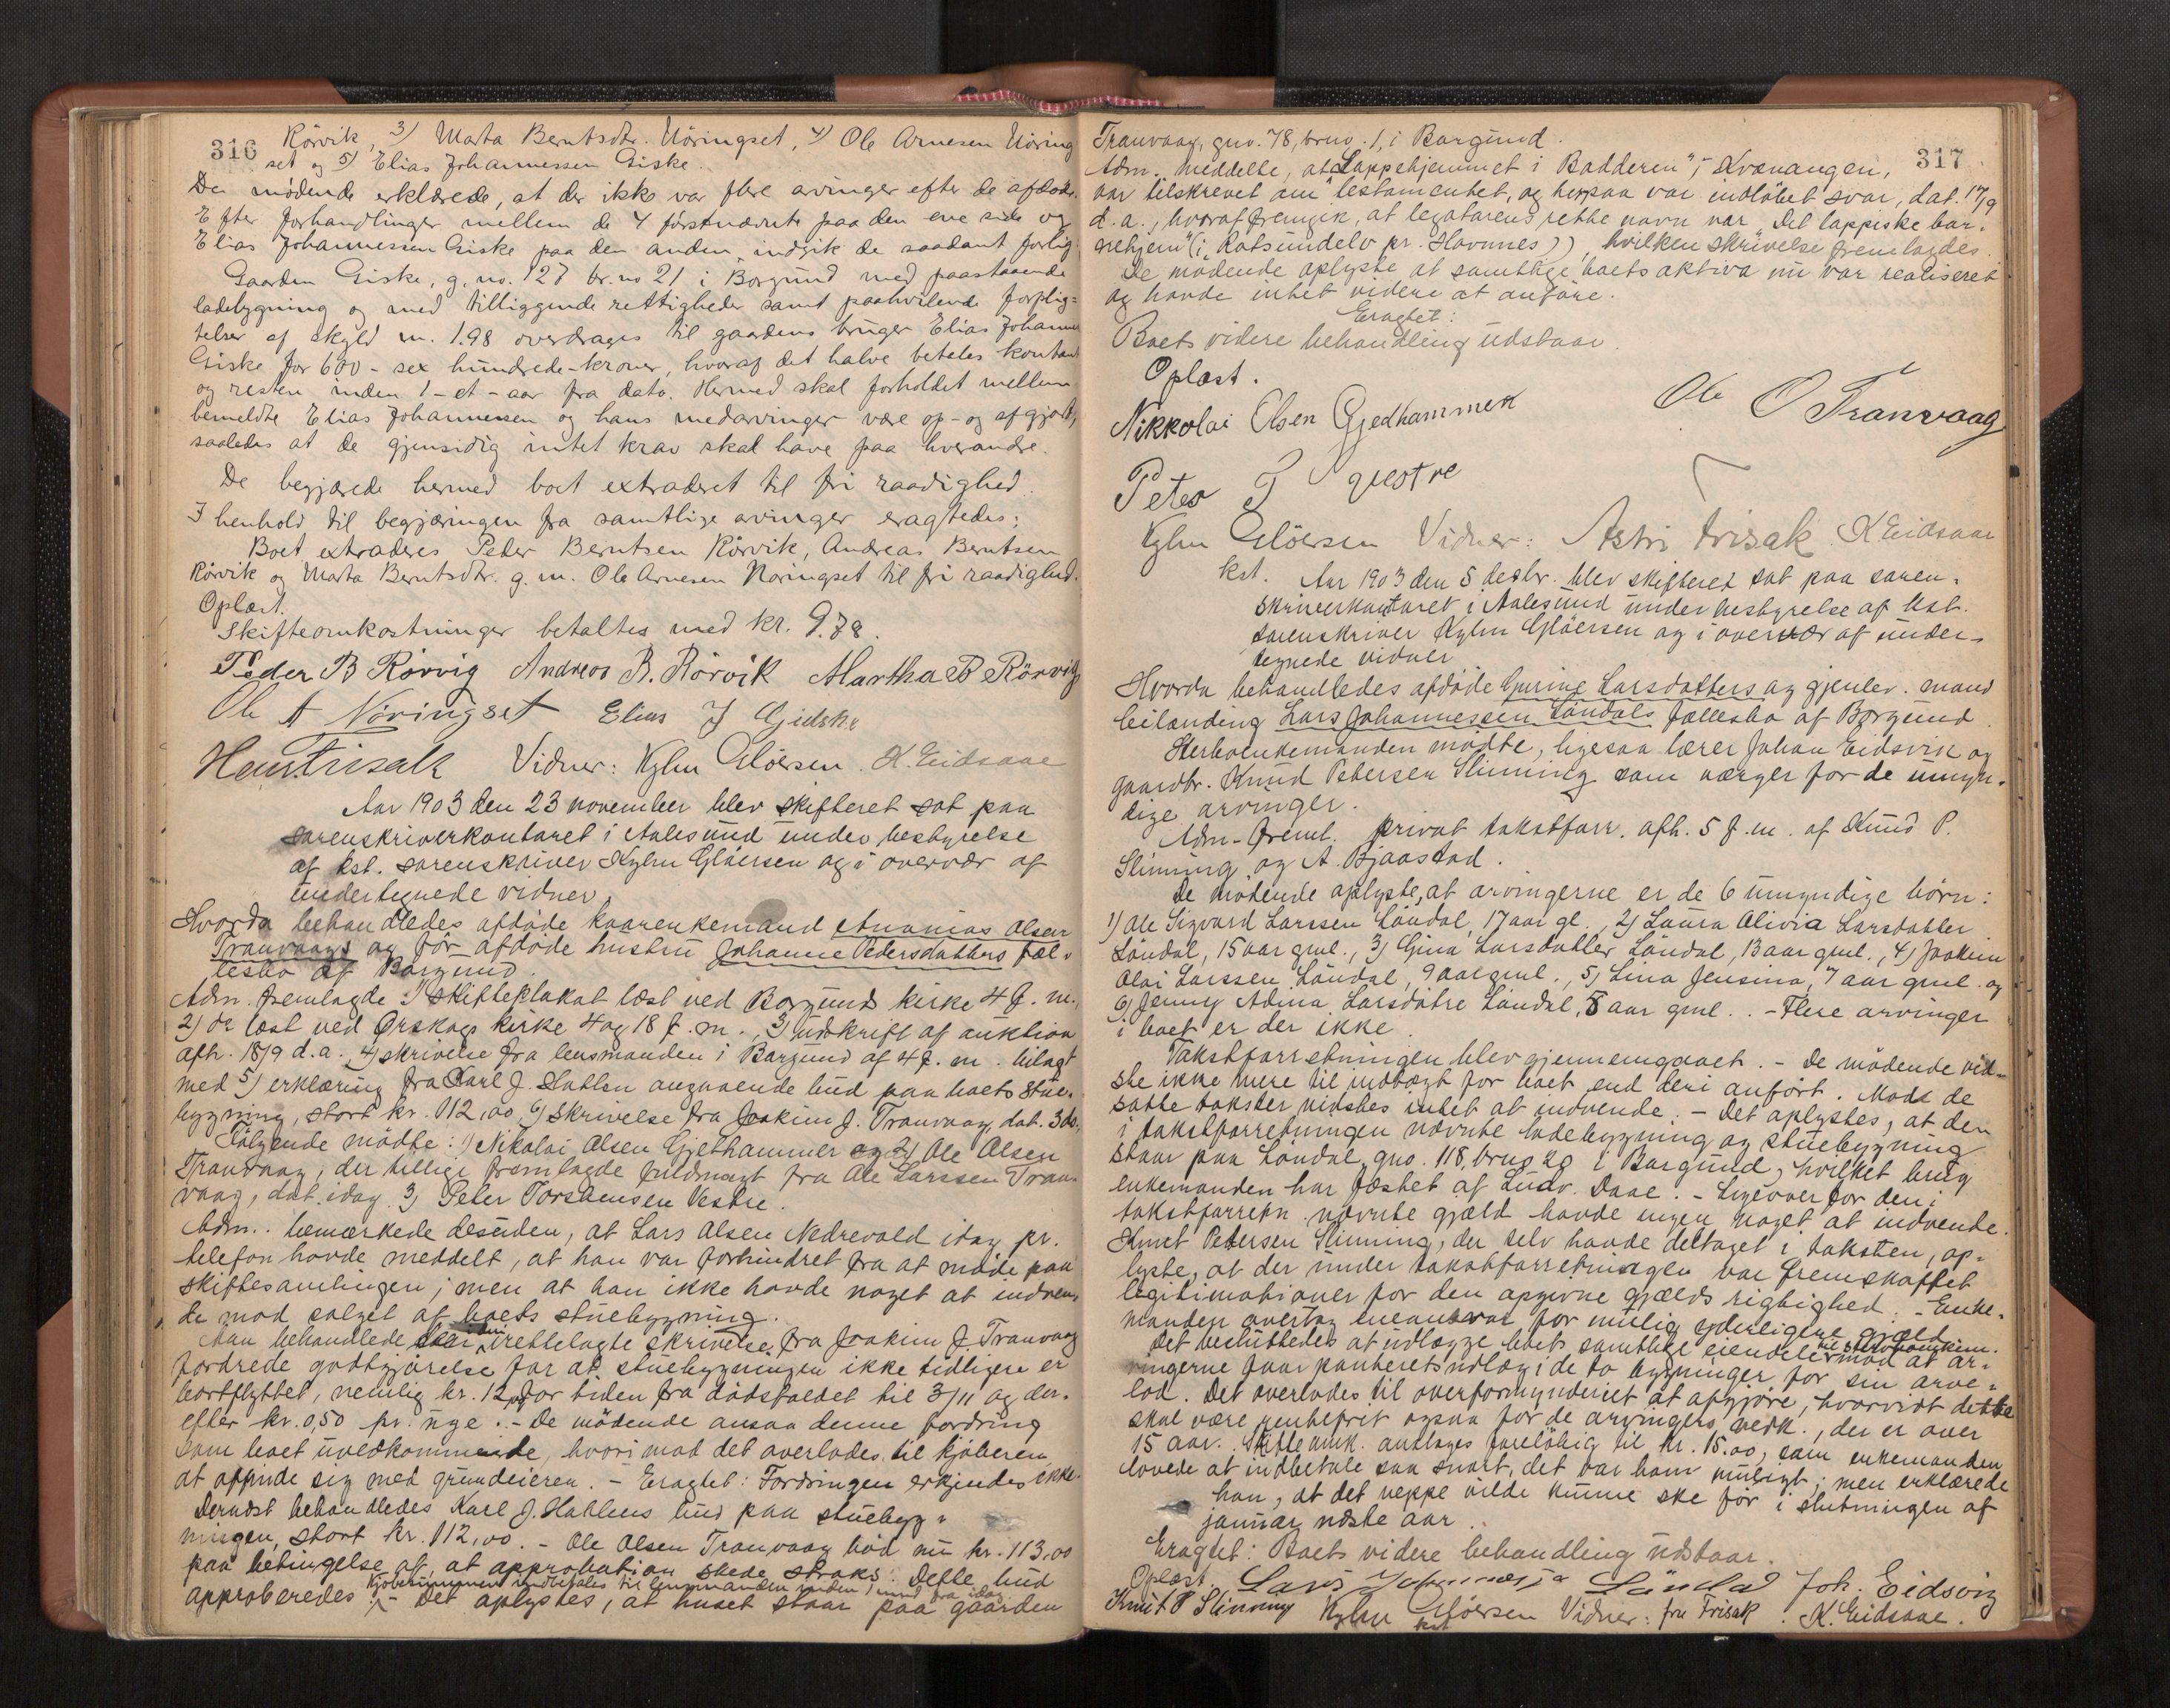 316
Rörvik, 3) Marta Berntsdtr. Nöringset, 4) Ole Arnesen Nöring
set og 5) Elias Johannessen Giske.
De mødende erklærede, at der ikke var flere arvinger efter de afdøde.
Efter forhandlinger mellem de 4 förstnævnte paa den ene side og
Elias Johannessen Giske paa den anden, indgik de saadant forlig:
Gaarden Giske, g. no. 127 br. no 21 i Borgund med paastaaende
ladebygning og med tilliggende rettigheder samt paahvilende forplig=
telser af skyld m. 1.98 overdrages til gaardens bruger Elias Johannes
Giske for 600 - sex hundrede - kroner, hvoraf det halve betales kontant
og resten inden 1 - et - aar fra dato. Hermed skal forholdet mellem
bemeldte Elias Johannessen og hans medarvinger være op- og afgjort,
saaledes at de gjensidig intet krav skal have paa hverandre.
De begjærede hermed boet extraderet til fri raadighed.
I henhold til begjæringen fra samtlige arvinger eragtedes:
Boet extraderes Peder Berntsen Rörvik, Andreas Berntsen
Rörvik og Marta Berntsdtr. g. m. Ole Arnesen Nöringset til fri raadighed.
Oplæst.
Skifteomkostninger betaltes med kr. 9.78.
Peder B Rörvig Andreas B. Rörvik Martha B Rörvig
Ole A Nöringset Elias J Gjidske
Hans Frisak Vidner: Kylm Glöersen. K. Eidsaae
Aar 1903 den 23 november blev skifteret sat paa
sorenskriverkontoret i Aalesund under bestyrelse
af kst. sorenskriver Kylm Glöersen og i overvær af
undertegnede vidner
Hvorda behandledes afdøde kaarenkemand Ananias Olsen
Tranvaags og før afdøde hustru Johanne Pedersdatters fæl-
lesbo af Borgund.
Adm. fremlagde 1) skifteplakat læst ved Borgund kirke 4 f. m.,
2) do læst ved Ørskogs kirke 4 og 18 f. m., 3) udskrift af auktion
afh. 18/9 d. a., 4) skrivelse fra lensmanden i Borgund af 4 f. m. bilagt
med 5) erklæring fra Karl J. Hahlen angaaende bud paa boets stue-
bygning, stort kr. 112,00, 6) skrivelse fra Joakim J. Tranvaag, dat. 3 ds.
Følgende mødte: 1) Nikolai Olsen Gjethammer og 2) Ole Olsen
Tranvaag, der tillige fremlagde fuldmagt fra Ole Larssen Tran-
vaag, dat. idag. 3) Peter Torsteinsen Vestre.
Adm. bemærkede desuden, at Lars Olsen Nedrevold idag pr.
telefon havde meddelt, at han var forhindret fra at møde paa
skiftesamlingen; men at han ikke havde noget at indven-
de mod salget af boets stuebygning.
Man behandlede den irettelagte skrivelse fra Joakim J. Tranvaag
fordrede godtgjørelse for at stuebygningen ikke tidligere er
bortflyttet, nemlig kr. 12,00 for tiden fra dødsfaldet til 3/11 og der-
efter kr. 0,50 pr. uge. - De mødende ansaa denne fordring
som boet uvedkommende, hvorimod det overlodes til kjøberen
at affinde sig med grundeieren. - Eragtet: Fordringen erkjendes ikke.
Dernæst behandledes Karl J. Hahlens bud paa stuebyg-
ningen, stort kr. 112,00. - Ole Olsen Tranvaag bød nu kr. 113,00
paa betingelse af, at approbation skede straks. Dette bud
kjøbesummen indbetales til lensmanden inden 1 mnd fra idag
approberedes. - Det oplystes, at huset staar paa gaarden
317
Tranvaag, gno. 78, brno. 1, i Borgund.
Adm. meddelte, at "Lappehjemmet i Badderen", Kvænangen,
var tilskrevet om testamentet, og herpaa var indløbet svar, dat. 17/9
d. a., hvoraf fremgik, at legatarens rette navn var "Det lappiske bør-
nehjem" (i Rotsundelv pr. Havnnes), hvilken skrivelse fremlagdes.
De mødende oplyste at samtlige boets aktiva nu var realiseret
og havde intet videre at anføre.
Eragtet:
Boets videre behandling udstaar.
Oplæst.
Nikkolai Olsen Gjedhammer Ole O Tranvaag
Peter T Vestre
Kylm Glöersen Vidner: Astri Frisak K. Eidsaae
kst.
Aar 1903 den 5 decbr. blev skifteret sat paa soren-
skriverkontoret i Aalesund under bestyrelse af kst.
sorenskriver Kylm Glöersen og i overvær af under-
tegnede vidner
Hvorda behandledes afdøde Gurine Larsdatters og gjenlev. mand
leilænding Lars Johannessen Løndals fællesbo af Borgund.
Sterboenkemanden mødte, ligesaa lærer Johan Eidsvik og
gaardbr. Knud Petersen Slinning som værger for de umyn-
dige arvinger.
Adm. freml. privat takstforr. afh. 5 f. m. af Knud P.
Slinning og A. Bjaastad.
De mødende oplyste, at arvingerne er de 6 umyndige børn:
1) Ole Sigvard Larssen Løndal, 17 aar gl., 2) Laura Olivia Larsdatter
Løndal, 15 aar gml., 3) Gina Larsdatter Løndal, 13 aar gml., 4) Joakim
Olai Larssen Løndal, 9 aar gml., 5) Lina Jensina, 7 aar gml. og
6) Jenny Adma Larsdatre Løndal, 5 aar gml. - Flere arvinger
i boet er der ikke.
Takstforretningen blev gjennemgaaet. - De mødende vid-
ste ikke mere til indtægt for boet end deri anført. Mod de
satte takster vidstes intet at indvende. - Det oplystes, at den
i takstforretningen nævnte ladebygning og stuebygning
staar paa Løndal, gno. 118, brno 20 i Borgund, hvilket brug
enkemanden har fæstet af Ludv. Daae. - Ligeover for den i
takstforretn. nævnte gjæld havde ingen noget at indvende.
Knut Petersen Slinning, der selv havde deltaget i taksten, op-
lyste, at der under takstforretningen var fremskaffet
legitimationer for den opgivne gjælds rigtighed. - Enke-
manden overtog eneansvar for mulig yderligere gjæld.
Det besluttedes at udlægge boets samtlige eiendele til sterboenkem. mod at ar-
vingerne faar panteretsudlæg i de to bygninger for sin arve-
lod. Det overlodes til overformynderiet at afgjøre, hvorvidt dette
skal være rentefrit ogsaa for de arvingers vedk., der er over
15 aar. Skifteomk. antages foreløbig til kr. 15.00, som enkemanden
lovede at indbetale saa snart, det var ham muligt; men erklærede
han, at det neppe vilde kunne ske før i slutningen af
januar næste aar.
Eragtet: Boets videre behandling udstaar.
Oplæst. Lars Johannesen Löndal Joh. Eidsvig
Knut P Slinning Kylm Glöersen Vidner: fru Frisak. K. Eidsaae.
kst